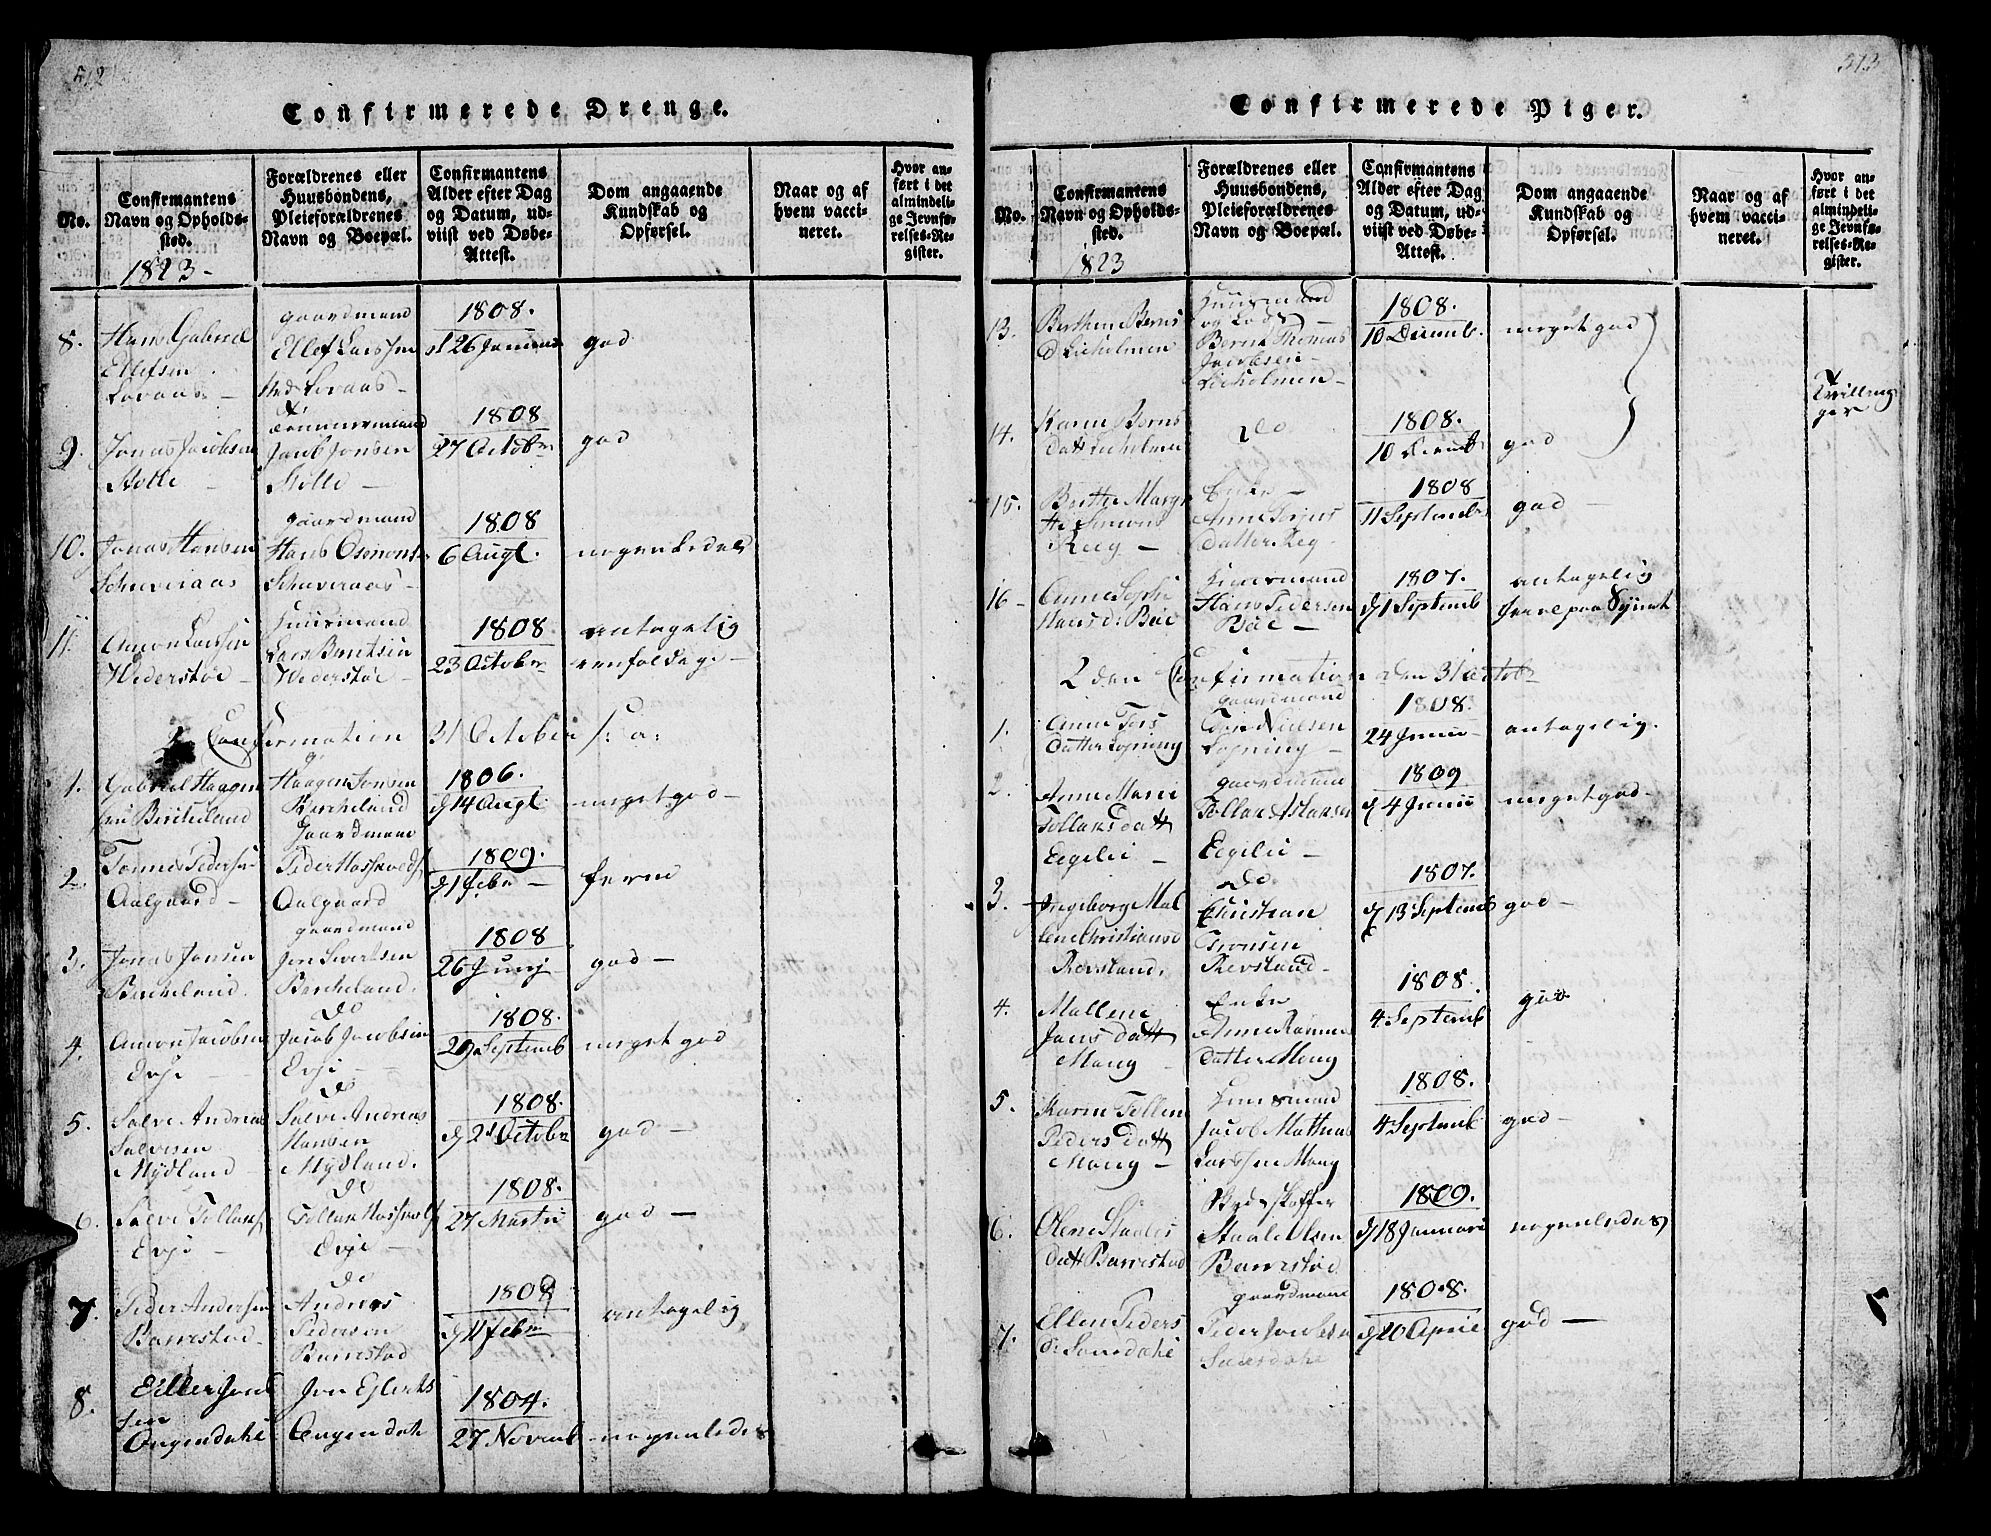 512
Confirmerede Drenge.
No.
Confirmantens
Navn og Opholds-
sted.
Forældrenes eller
Huusbondens,
Pleieforældrenes
Navn og Boepæl.
Confirmantens
Alder efter Dag
og Datum, ud-
viist ved Døbe-
Attest.
Dom angaaende
Kundskab og
Opførsel.
Naar og af
hvem vacci-
neret.
Hvor an-
ført i det
almindeli-
ge Jevnfø-
relses-Re-
gister.
1823-
8.
Hans Gabriel
Ellefsen
Lovaas -
gaardmand
Ellef Larssen
Lovaas -
1808.
26 Januar
god
9.
Jonas Jacobsen
Stolle -
Tømmermand
Jacob Jonsen
Stolle -
1808
27 Octobr
god
10.
Jonas Hansen
gaardmand
Hans Osmons
1808
6 Augl.
nogenledes
11.
Amon Larsen
Wederstøe -
Huusmand
Lars Berntsen
Wederstøe -
1808.
23 Octobr
antagelig
Confirmation 31 October /: a:
1.
Gabriel Haagen
Haagen Jonsen
Bercheland
Gaardmand
1806.
d 14 Augl.
meget god -
2.
Tønnes Peders
Aalgaard -
Peder Hoskolds
Aalgaard
1809.
d 1 febr -
ferm
3.
Jonas Jonsen
Bercheland.
gaardmand
Jon Sivertsen
Bercheland.
1808
26 Junj
god -
4.
Amon Jacobsen
Evje -
do
Jacob Jacobsen
Evje -
1808.
29 Septemb
meget god
5.
Salve Andreas
Salvesen
Mydland -
do
Salve Andreas
Hansen
Mydland.
1808.
d 21 Octobr
god -
6.
Salve Tollaks
Evje -
do
Tollak Hoskolds
Evje -
1808.
27 Martii
god -
7.
Peder Andersen
Barrestad -
do
Andreas
Pedersen
Barrestad
1809
d 11 febr
antagelig
8.
Eiller Jons
sen
Ougendahl
Jon Ejlerts
Ougendahl
1804.
27 Novemb
nogenledes
513
Confirmerede Piger.
No.
Confirmantens
Navn og Opholds-
sted.
Forældrenes eller
Huusbondens,
Pleieforældrenes
Navn og Boepæl.
Confirmantens
Alder efter Dag
og Datum, ud-
viist ved Døbe-
Attest.
Dom angaaende
Kundskab og
Opførsel.
Naar og af
hvem vacci-
neret.
Hvor an-
ført i det
almindeli-
ge Jevnfø-
relses-Re-
gister.
1823
13.
Berthe Berns
D Lieholmen
Huusmand
og Lods -
Bernt Thomas
Jacobsen
Lieholmen -
1808.
10 Decemb.
meget god
Tvillin-
ger
14.
Karen Berns
datt Lieholmen
do
1808.
10 Decemb
god
15.
Berthe Margre
the Simons
Reeg -
Enke -
Anne
Datter Reg.
1808
11 Septembr
god -
16 -
Anne Sophi
Hans d: Bøe
Huusmand
Hans Pedersen
Bøe -
1807.
d 1 Septemb
antagelig
2 den Confirmation den 31 octobr
1.
Anne Tors
datter Løgning
gaardmand
Tore Nielsen
Løgning -
1808.
24 Junii -
antagelig.
2.
Anne Marie
Tollaks datt
Eegelie -
gaardmand
Tollak Aslaksen
Eegelie -
1809
d 4 Junii
meget god -
3.
Ingeborg Mal
lene Christians d
Revsland.
do
Christian
Revsland -
1807.
d 13 Septemb
god -
4.
Mallene
Jans datt
Mong -
Enke
Anne
Datter Mong
1808.
4 Septemb
god
5.
Karen Tollene
Peders datt
Mong -
Huusmand
Jacob Mathias
Larssen Mong
1808.
4 Septemb
god -
6.
Olene Staales
datt Barrestad
Staale Olsen
Barrestad
1809.
d 18 Januari
nogenledes
7.
Ellen Peders
gaardmand
Peder
1808.
d 20 Aprile
god -